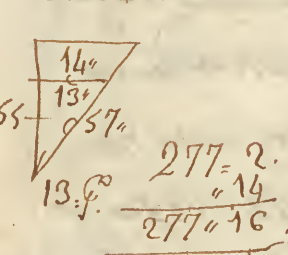 14"
13"
55
57"
13=
277=2.
"14
277"16